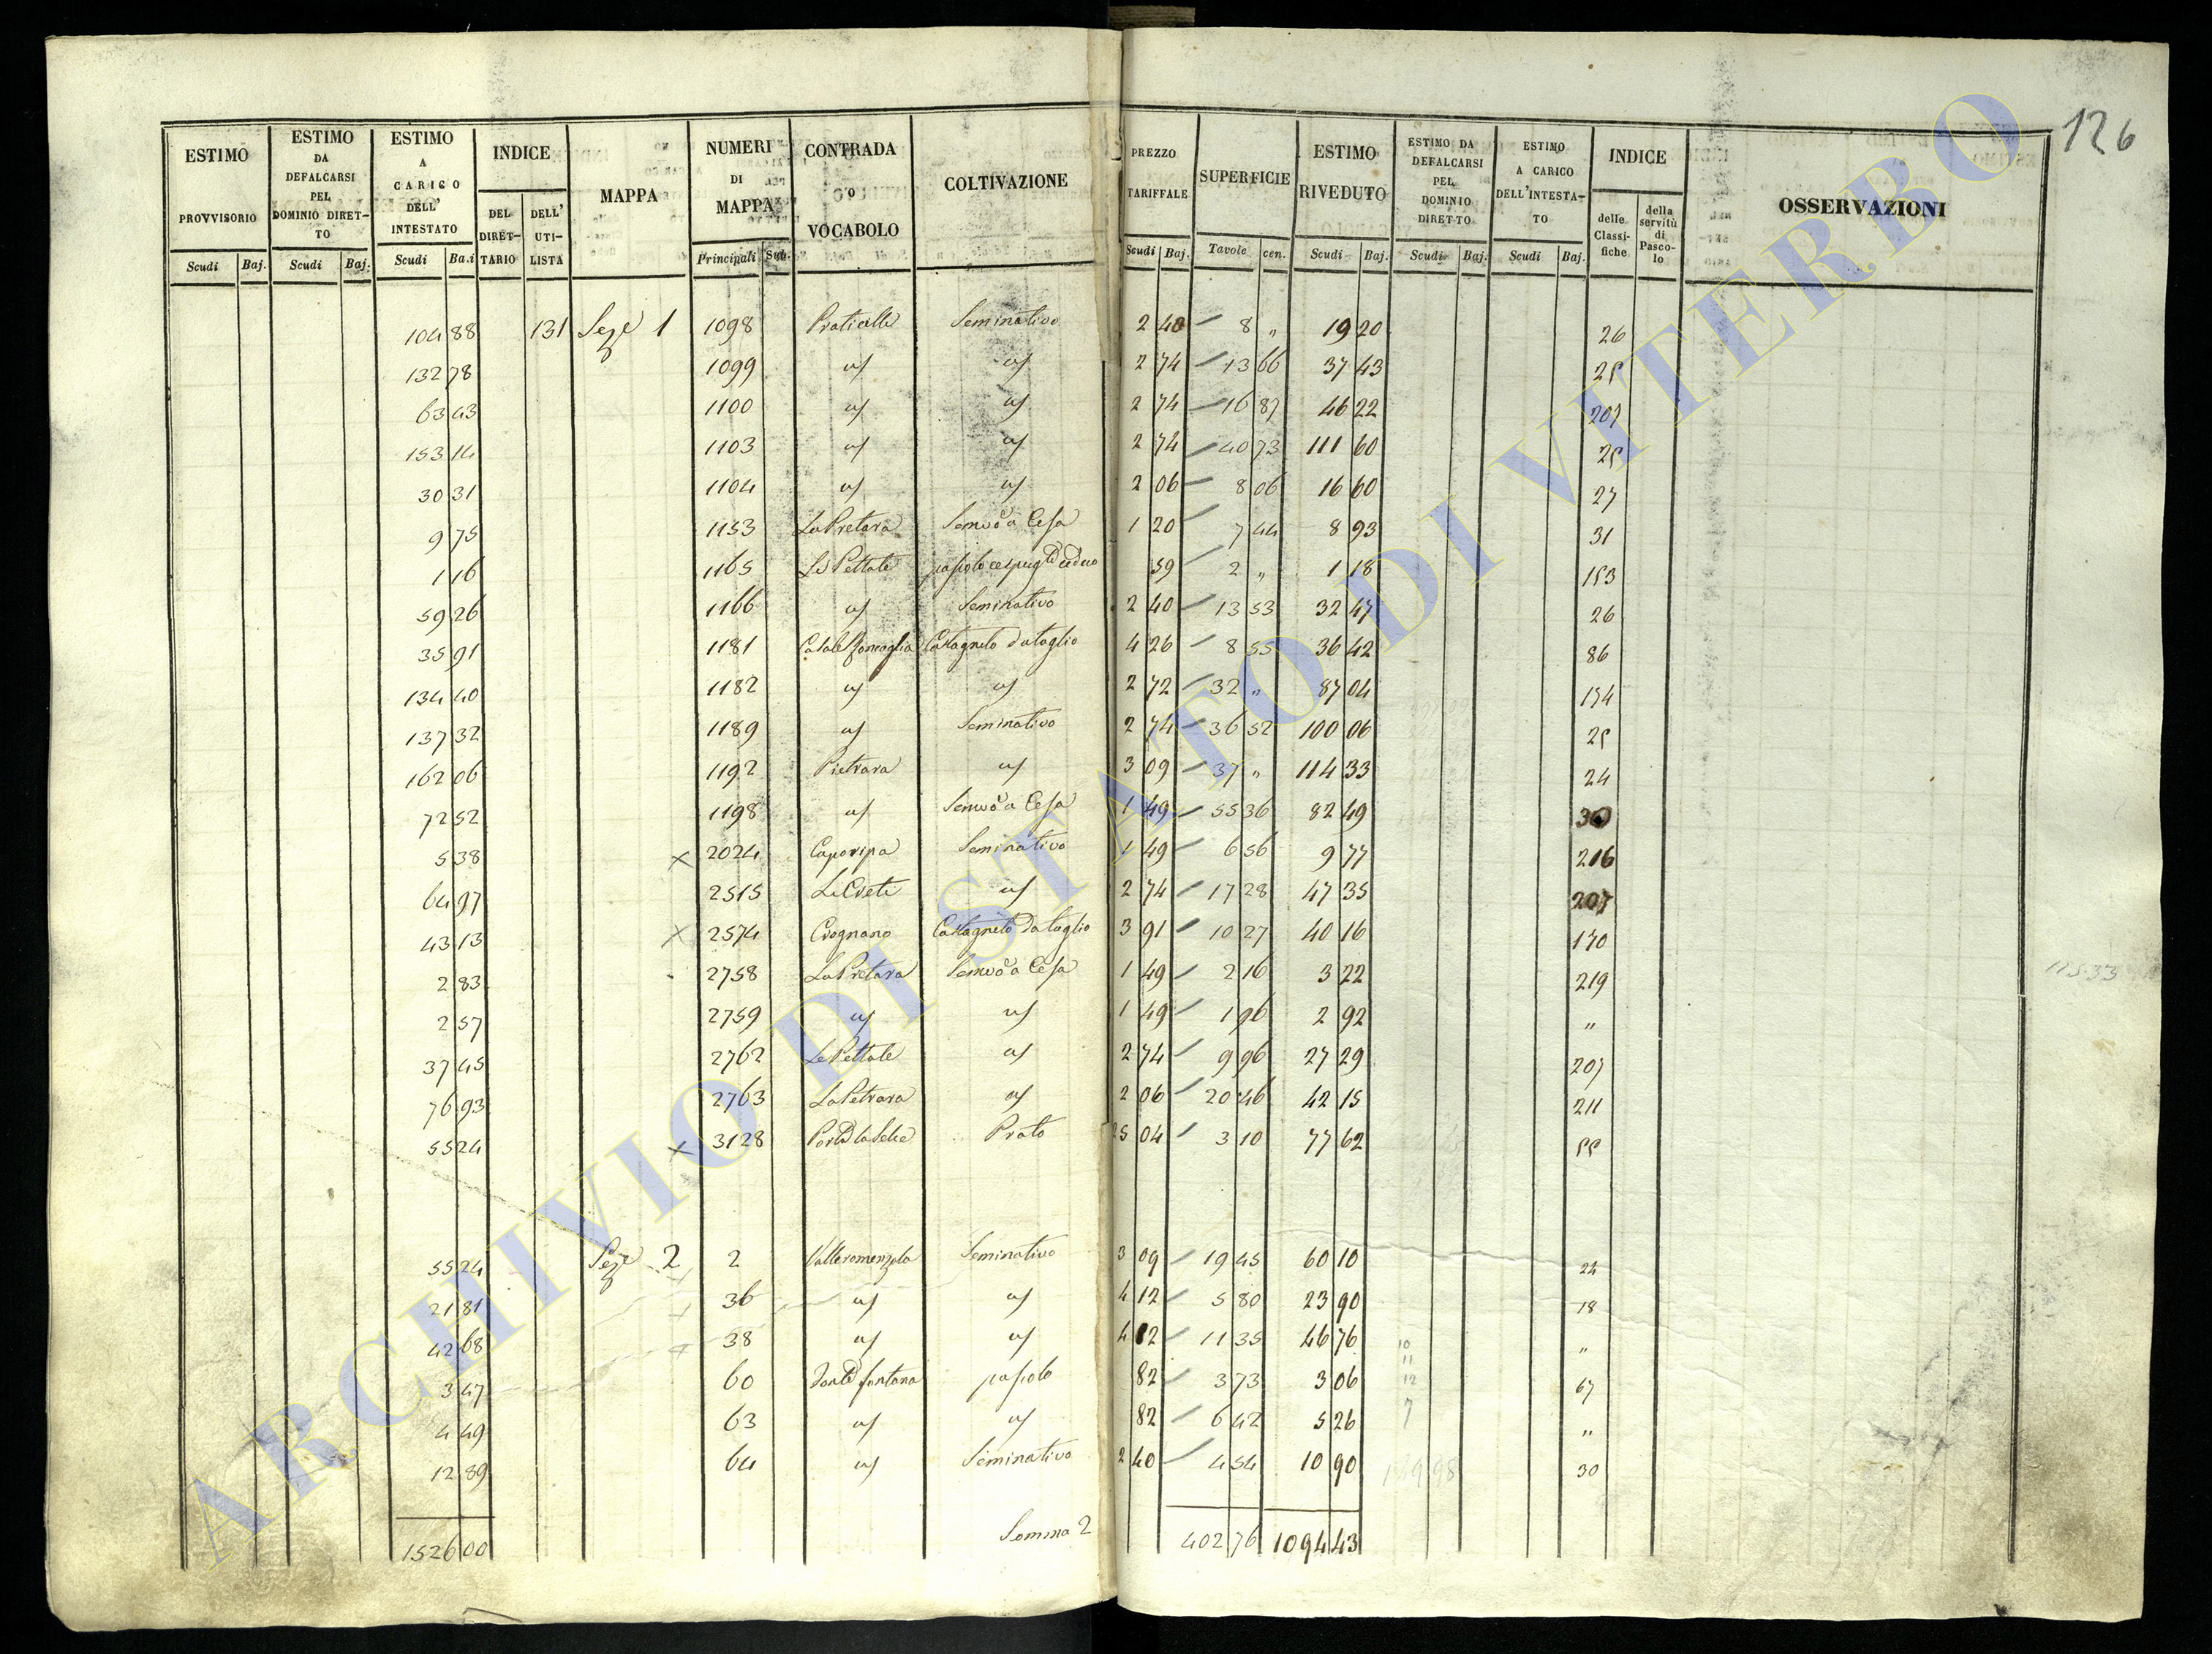 126
ESTIMO PROVVISORIO | ESTIMO DA DEFALCARSI PEL DOMINIO DIRETTO | ESTIMO A CARICO DELL' INTESTATO | INDICE | MAPPA | NUMERI DI MAPPA | CONTRADA o VOCABOLO | COLTIVAZIONE | PREZZO TARIFFALE | SUPERFICIE | ESTIMO RIVEDUTO | ESTIMO DA DEFALCARSI PEL DOMINIO DIRETTO | ESTIMO A CARICO DELL'INTESTATO | INDICE | OSSERVAZIONI
DEL DIRETTARIO | DELL' UTILISTA | delle Classifiche | della servitù di Pascolo
Scudi | Baj. | Scudi | Baj. | Scudi | Ba.i | Principali | Sub. | Scudi | Baj. | Tavole | cen. | Scudi | Baj. | Scudi | Baj. | Scudi | Baj.
104 88 | 131 | Seze 1 | 1098 | Praticelle | Seminativo | 2 40 | 8 „ | 19 20 | 26
132 78 | 1099 | us | us | 2 74 | 13 66 | 37 43 | 25
63 43 | 1100 | us | us | 2 74 | 16 87 | 46 22 | 207
153 14 | 1103 | us | us | 2 74 | 40 73 | 111 60 | 25
30 31 | 1104 | us | us | 2 06 | 8 06 | 16 60 | 27
9 75 | 1153 | La Pretara | Semvo a Cesa | 1 20 | 7 44 | 8 93 | 31
1 16 | 1165 | Le Pettate | pascolo cespugto ceduo | 59 | 2 „ | 1 18 | 153
59 26 | 1166 | us | Seminativo | 2 40 | 13 53 | 32 47 | 26
35 91 | 1181 | Casale | Castagneto da taglio | 4 26 | 8 55 | 36 42 | 86
134 40 | 1182 | us | us | 2 72 | 32 „ | 87 04 | 154
137 32 | 1189 | us | Seminativo | 2 74 | 36 52 | 100 06 | 25
162 06 | 1192 | Pietrara | us | 3 09 | 37 „ | 114 33 | 24
72 52 | 1198 | us | Semvo a Cesa | 1 49 | 55 36 | 82 49 | 30
5 38 | x 2024 | Caporipa | Seminativo | 1 49 | 6 56 | 9 77 | 216
64 97 | 2515 | Le Crete | us | 2 74 | 17 28 | 47 35 | 207
43 13 | x 2574 | Crognano | Castagneto da taglio | 3 91 | 10 27 | 40 16 | 170
2 83 | 2758 | La Pretara | Semvo a Cesa | 1 49 | 2 16 | 3 22 | 219
2 57 | 2759 | us | us | 1 49 | 1 96 | 2 92 | „
37 45 | 2762 | Le Pettate | us | 2 74 | 9 96 | 27 29 | 207
76 93 | 2763 | La Petrara | us | 2 06 | 20 46 | 42 15 | 211
55 24 | x 3128 | Prato | 25 04 | 3 10 | 77 62 | 55
55 24 | Seze 2 | 2 | Valleromenzola | Seminativo | 3 09 | 19 45 | 60 10 | 24
21 81 | 36 | us | us | 4 12 | 5 80 | 23 90 | 18
42 68 | 38 | us | us | 4 12 | 11 35 | 46 76 | „
3 47 | 60 | fontana | pascolo | 82 | 3 73 | 3 06 | 67
4 49 | 63 | us | us | 82 | 6 42 | 5 26 | „
12 89 | 64 | us | Seminativo | 2 40 | 4 54 | 10 90 | 30
1526 00 | Somma 2 | 402 76 | 1094 43
ARCHIVIO DI STATO DI VITERBO